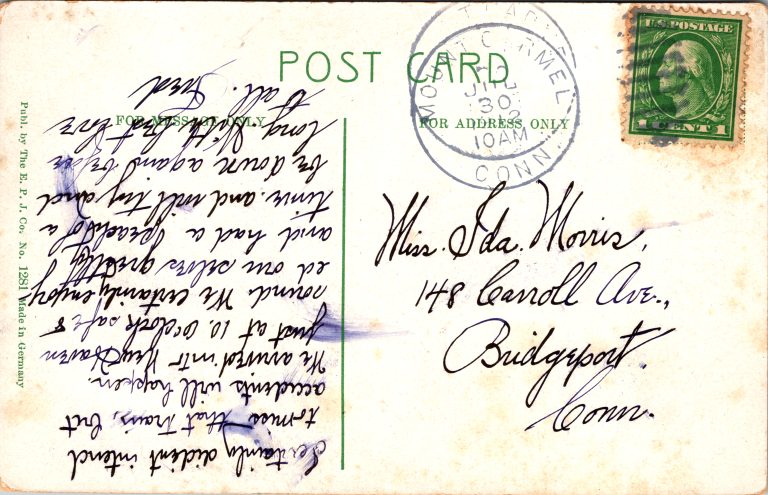 POST CARD
FOR MESSAGE ONLY
FOR ADDRESS ONLY
MOUNT CARMEL
30
10 AM
CONN
U.S. POSTAGE
1 CENT 1
Miss. Ida. Morris,
148 Carroll Ave.,
Bridgeport.
Conn.
Certainly dident intend
to miss that train, but
accidents will happen.
We arrived into New Haven
just at 10. O'clock safe &
sound. We certainly enjoy
ed our selves greatly
and had a peach of a
time. and will try and
be down again before
long. With best love
to all. Fred
Publ. by The E. P. J. Co. No. 1281 Made in Germany